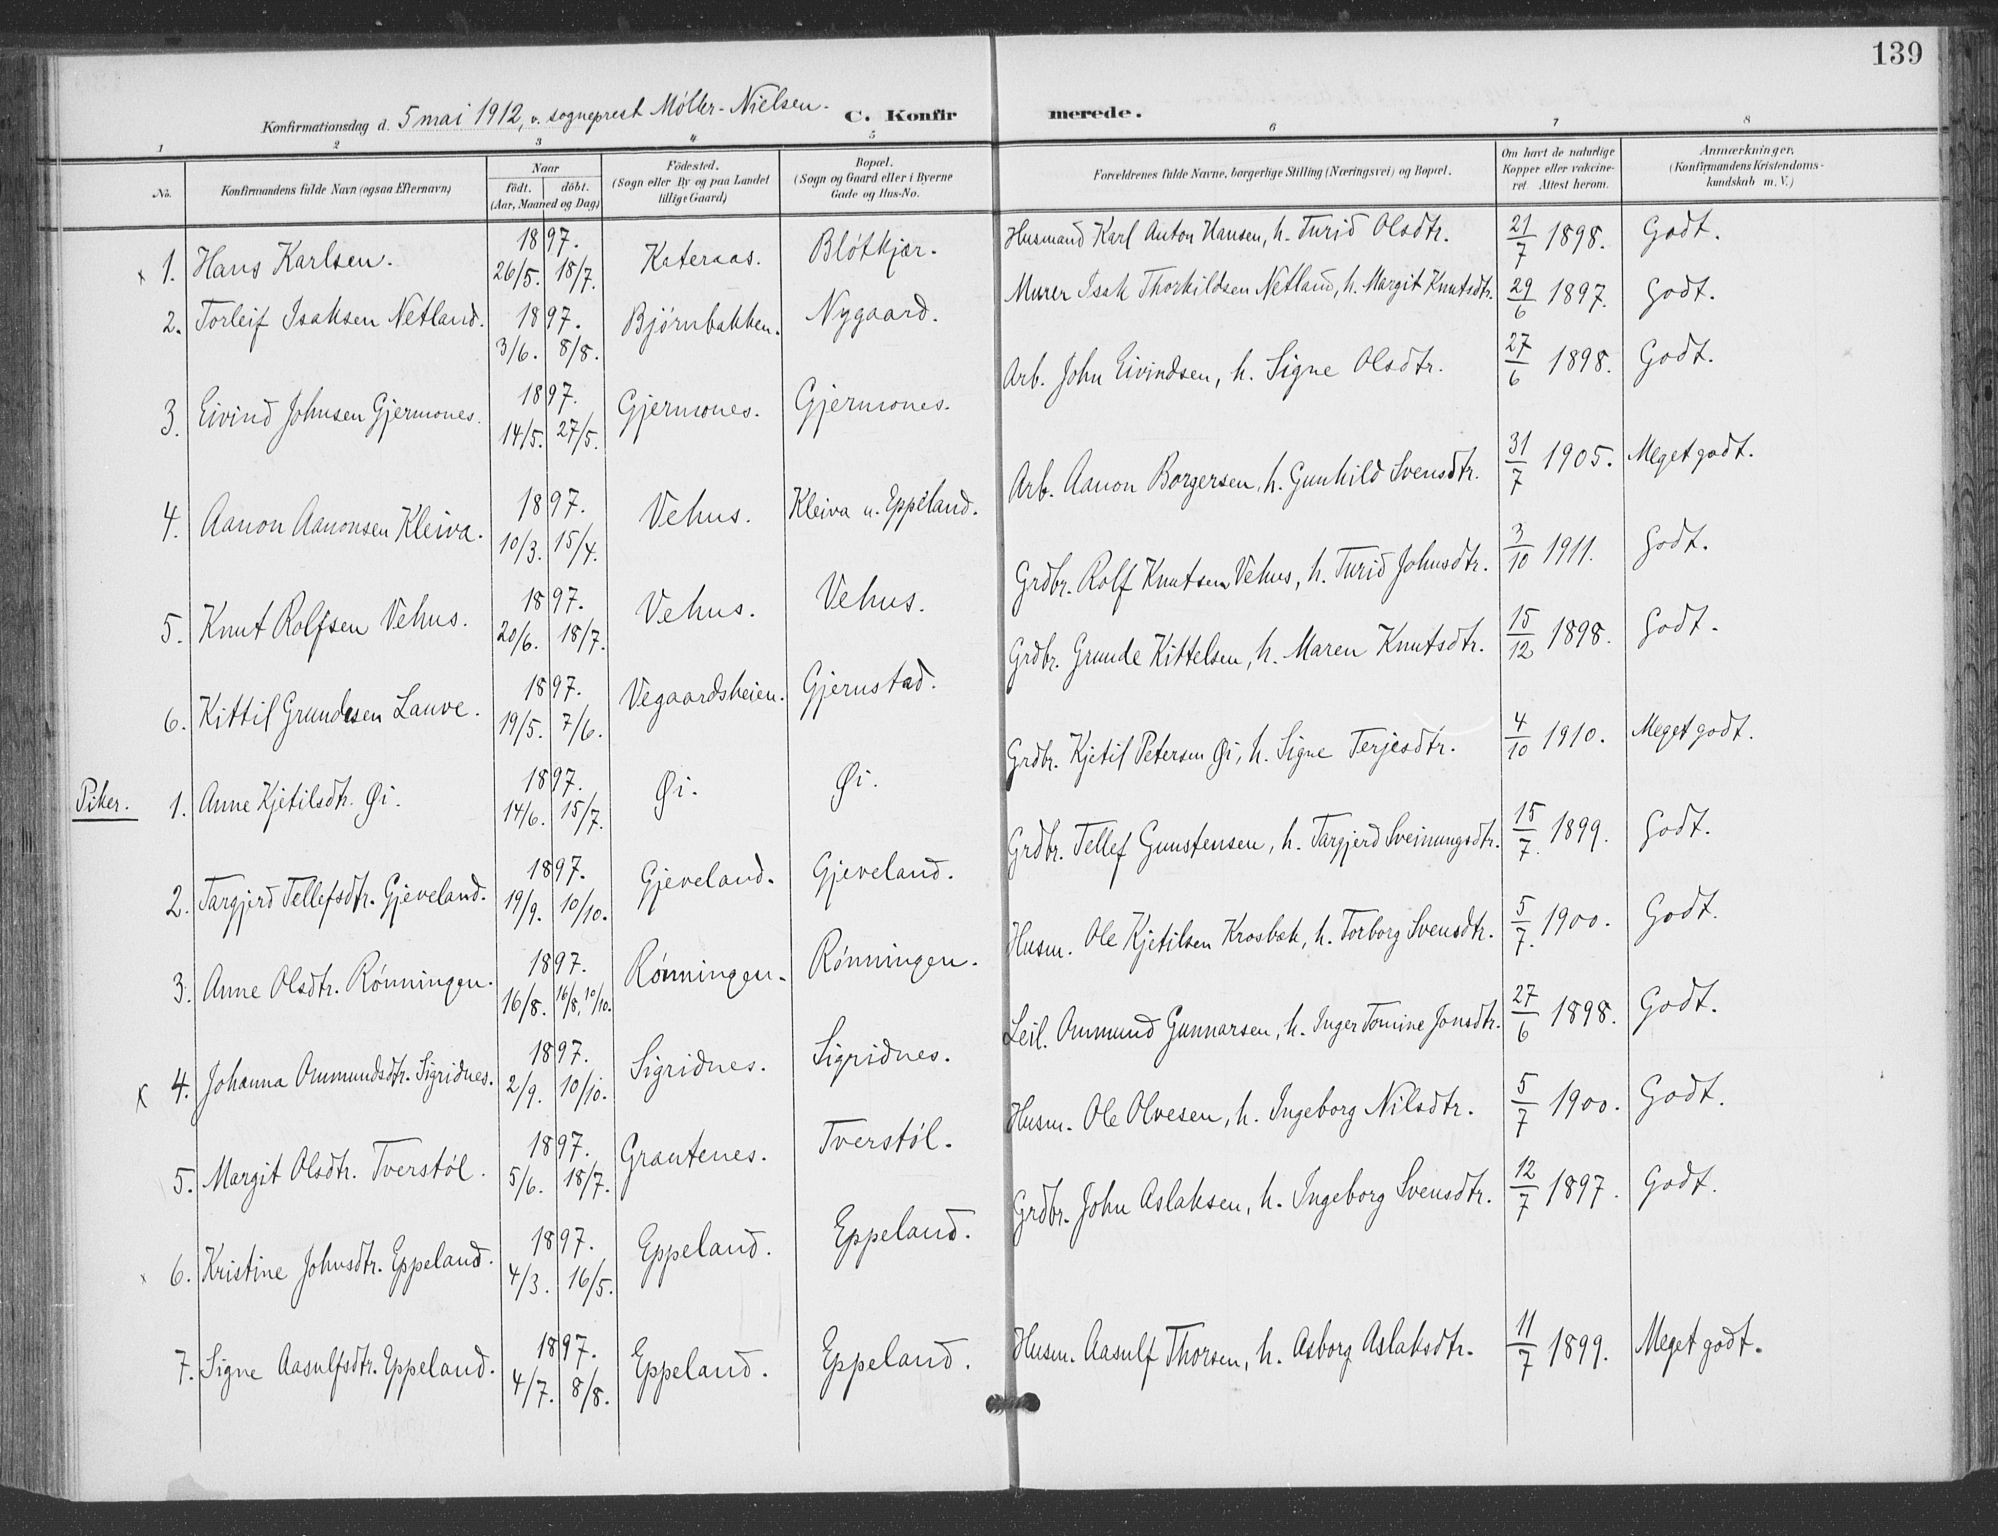 139
Konfirmationsdag d. 5 mai 1912, v. sogneprest Möller-Nielsen. C. Konfirmerede.
1 2 3 4 5 6 7 8
No. Konfirmandens fulde Navn (ogsaa Efternavn) Naar födt. döbt. (Aar, Maaned og Dag) Födested. (Sogn eller By og paa Landet tillige Gaard) Bopæl. (Sogn og Gaard eller i Byerne Gade og Hus-No. Forældrenes fulde Navne, borgerlige Stilling (Næringsvei) og Bopæl. Om havt de naturlige Kopper eller vakcineret. Attest herom. Anmærkninger. (Konfirmandens Kristendomskundskab m. V.)
x 1. Hans Karlsen. 1897. 26/5. 18/7. Kateraas. Blötkjær. Husmand Karl Anton Hansen, h. Turid Olsdtr. 21/7 1898. Godt.
2. Torleif Isaksen Netland. 1897. 3/6. 8/8. Björnbakken. Nygaard. Murer Isak Thorkildsen Netland, h. Margit Knutsdtr. 29/6 1897. Godt.
3. Eivind Johnsen Gjermones. 1897. 14/5. 27/5. Gjermones. Gjermones. Arb. John Eivindsen, h. Signe Olsdtr. 27/6 1898. Godt.
4. Aanon Aanonsen Kleiva. 1897. 10/3. 15/4. Vehus. Kleiva u. Eppeland. Arb. Aanon Borgersen, h. Gunhild Svensdtr. 31/7 1905. Meget godt.
5. Knut Rolfsen Vehus. 1897. 20/6. 18/7. Vehus. Vehus. Grdbr. Rolf Knutsen Vehus, h. Turid Johnsdtr. 3/10 1911. Godt.
6. Kittil Grundesen Lauve. 1897. 19/5. 7/6. Vegaardsheien. Gjernstad. Grdbr. Grunde Kittelsen, h. Maren Knutsdtr. 15/12 1898. Godt.
Piker. 1. Anne Kjetilsdtr. Øi. 1897. 14/6. 15/7. Øi. Øi. Grdbr. Kjetil Petersen Øi, h. Signe Terjesdtr. 4/10 1910. Meget godt.
2. Targjerd Tellefsdtr. Gjeveland. 1897. 19/9. 10/10. Gjeveland. Gjeveland. Grdbr. Tellef Gunstensen, h. Targjerd Sveinungsdtr. 15/7. 1899. Godt.
3. Anne Olsdtr. Rönningen. 1897. 16/8. 16/8, 10/10. Rönningen. Rönningen. Husm. Ole Kjetilsen Krosbæk, h. Torborg Svensdtr. 5/7. 1900. Godt.
x 4. Johanna Ommundsdtr. Sigridnes. 1897. 2/9. 10/10. Sigridnes. Sigridnes. Leil. Ommund Gunnarsen, h. Inger Tomine Jonsdtr. 27/6 1898. Godt.
5. Margit Olsdtr. Tverstöl. 1897. 5/6. 18/7. Grautenes. Tverstöl. Husm. Ole Olvesen, h. Ingeborg Nilsdtr. 5/7 1900. Godt.
x 6. Kristine Johnsdtr. Eppeland. 1897. 4/3. 16/5. Eppeland. Eppeland. Grdbr. John Aslaksen, h. Ingeborg Svensdtr. 12/7 1897. Godt.
7. Signe Aasulfsdtr. Eppeland. 1897. 4/7. 8/8. Eppeland. Eppeland. Husm. Aasulf Thorsen, h. Asborg Aslaksdtr. 11/7 1899. Meget godt.